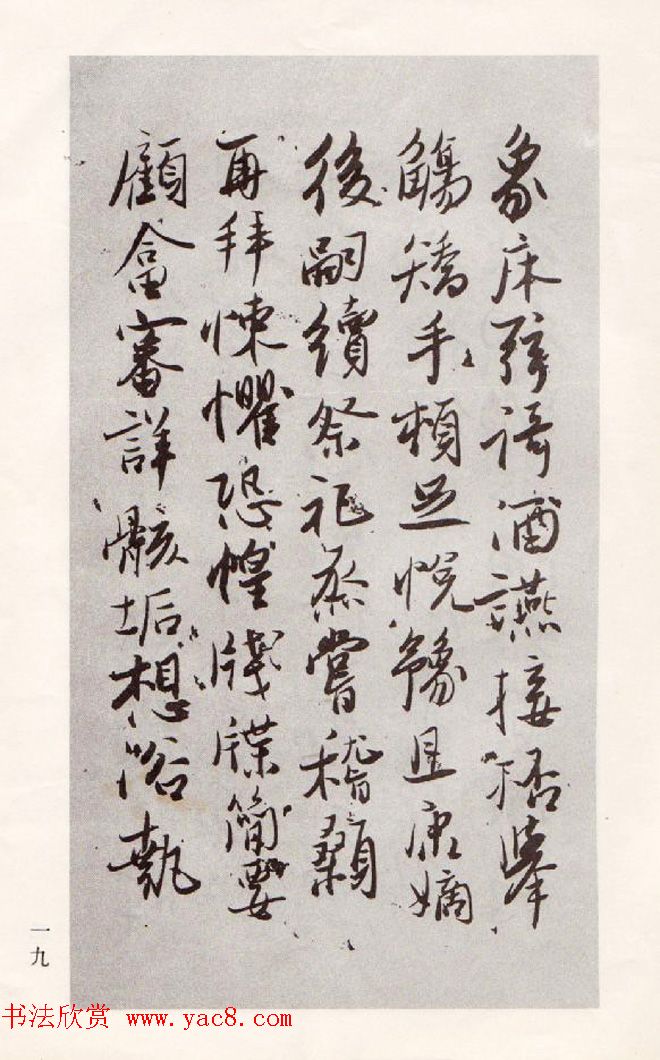 象床弦謌酒讌接桮舉
觴矯手頓足悅豫且康嫡
後嗣續祭祀烝嘗稽顙
再拜悚懼恐惶牋牒簡要
顧畣審詳骸垢想浴執
一九
书法欣赏 www.yac8.com